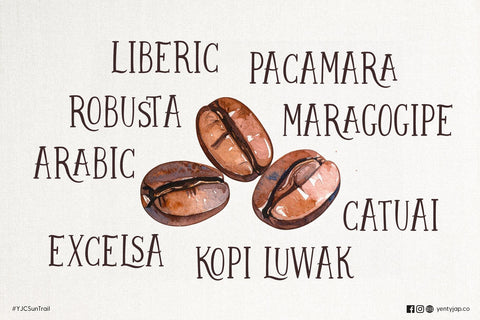 LIBERIC
PACAMARA
ROBUSTA
MARAGOGIPE
ARABIC
CATUAI
EXCELSA
KOPI LUWAK
#YJCSunTrail
yentyjap.co